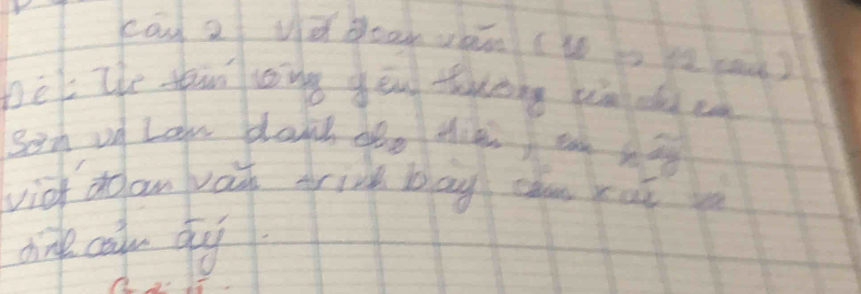 Câu 2 Viết đoạn văn (10 -> 12 câu)
Đề: Từ tấm lòng yêu thương của chị em
Sơn và Lan dành cho Hiên, em hãy
viết đoạn văn trình bày cảm xúc về
tình cảm ấy.